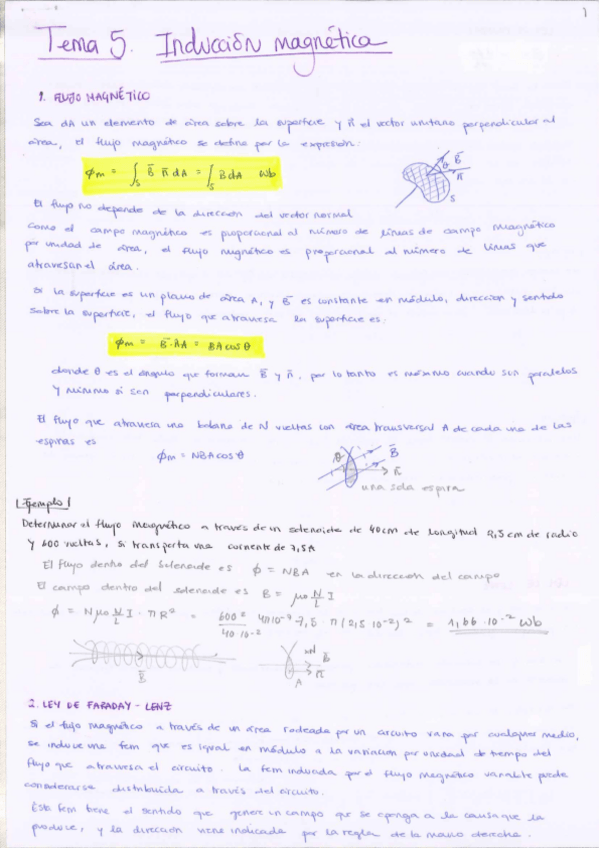 1
Tema 5. Inducción magnética
1. FLUJO MAGNÉTICO
Sea dA un elemento de área sobre la superficie y n̄ el vector unitario perpendicular al
área, el flujo magnético se define por la expresión:
ϕm = ∫s B̄ n̄ dA = ∫s B dA Wb
θ B̄
n̄
S
El flujo no depende de la dirección del vector normal
Como el campo magnético es proporcional al número de líneas de campo magnético
por unidad de área, el flujo magnético es proporcional al número de líneas que
atraviesan el área.
Si la superficie es un plano de área A, y B̄ es constante en módulo, dirección y sentido
sobre la superficie, el flujo que atraviesa la superficie es:
ϕm = B̄·n̄A = BA cos θ
donde θ es el ángulo que forman B̄ y n̄, por lo tanto es máximo cuando son paralelos
y mínimo si son perpendiculares.
El flujo que atraviesa una bobina de N vueltas con área transversal A de cada una de las
espiras es
ϕm = NBA cos θ
θ B̄
n̄
una sola espira
Ejemplo 1
Determinar el flujo magnético a través de un solenoide de 40cm de longitud 2,5 cm de radio
y 600 vueltas, si transporta una corriente de 7,5A
El flujo dentro del solenoide es ϕ = NBA en la dirección del campo
El campo dentro del solenoide es B = μ0 N/L I
ϕ = N μ0 N/L I · π R² = 600²/40·10⁻² 4π10⁻⁷·7,5 · π(2,5·10⁻²)² = 1,66·10⁻² Wb
B̄
B̄
n̄
A
2. LEY DE FARADAY - LENZ
Si el flujo magnético a través de un área rodeada por un circuito varia por cualquier medio,
se induce una fem que es igual en módulo a la variación por unidad de tiempo del
flujo que atraviesa el circuito. La fem inducida por el flujo magnético variable puede
considerarse distribuida a través del circuito.
Esta fem tiene el sentido que genere un campo que se oponga a la causa que la
produce, y la dirección viene indicada por la regla de la mano derecha.